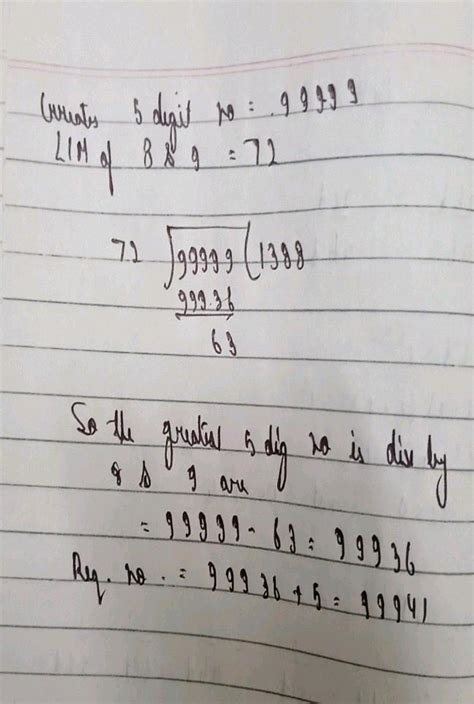 Greates 5 digit no = 99999
LCM of 8 & 9 = 72
72 99999 ( 1388
99936
63
So the greatest 5 dig no is div by
8 & 9 are
= 99999 - 63 = 99936
Req. no. = 99936 + 5 = 99941